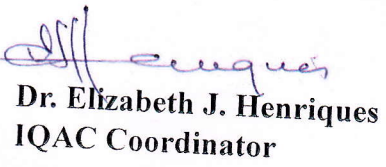 Dr. Elizabeth J. Henriques
IQAC Coordinator